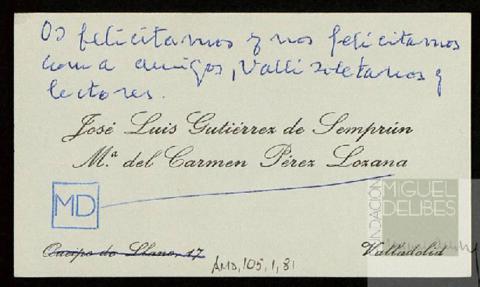 Os felicitamos y nos felicitamos
como amigos, Vallisoletanos y
lectores.
José Luis Gutiérrez de Semprún
M.ª del Carmen Pérez Lozana
MD
Queipo de Llano, 17
Valladolid
AMD,105,1,81
FUNDACIÓN
MIGUEL
DELIBES